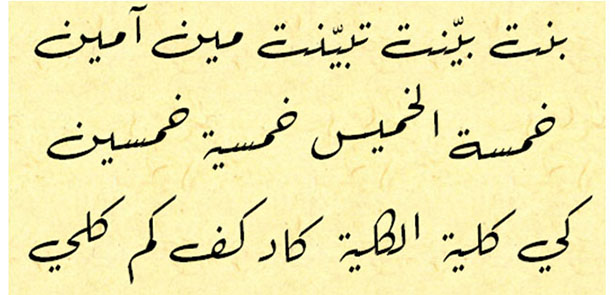 بنت بيّنت تبيّنت مين آمين
خمسة الخميس خمسية خمسين
كي كلية الكلية كاد كف كم كلي